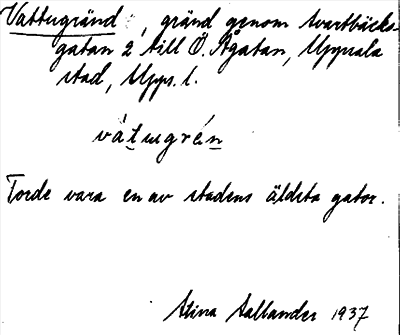 Vattugränd, gränd genom Svartbäcks-
gatan 2 till Ö. Ågatan, Uppsala
stad, Upps. l.
vátugrén
Torde vara en av stadens äldsta gator.
Stina Sallander 1937